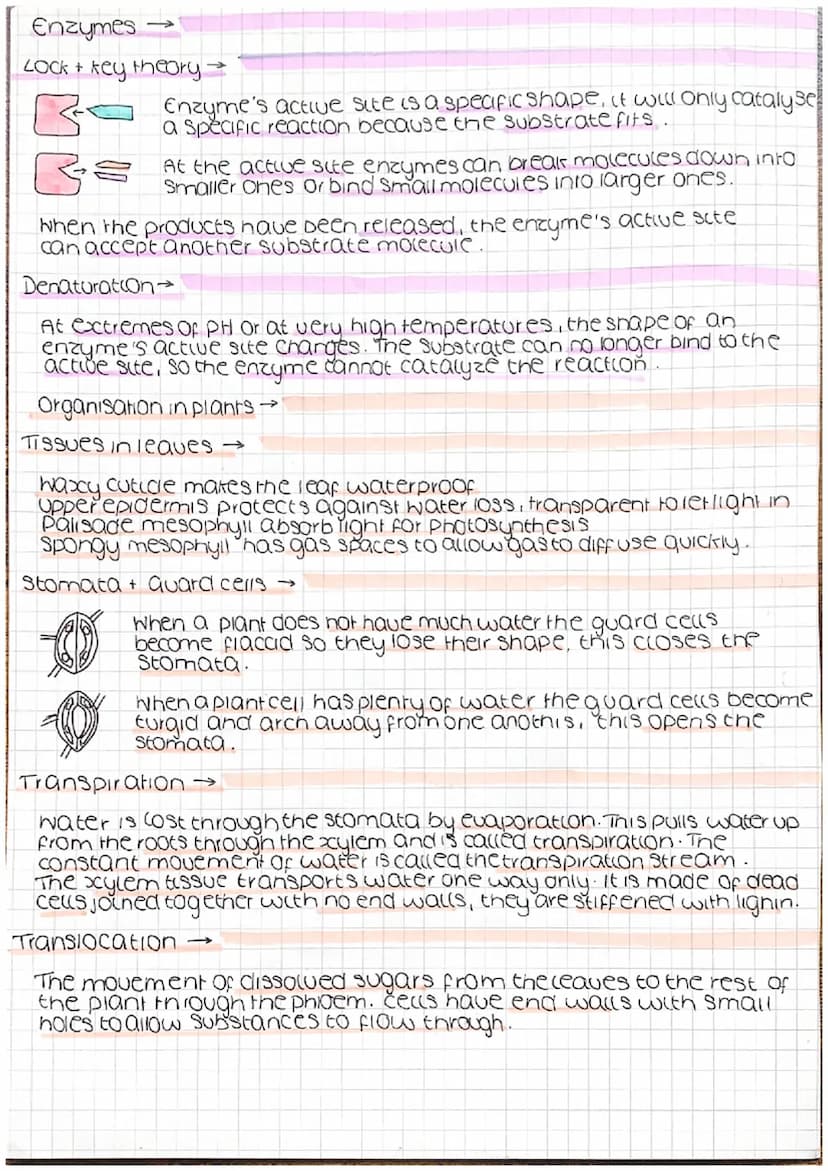 Enzymes →
Lock + key theory →
Enzyme's active site is a specific shape, it will only catalyse
a specific reaction because the substrate fits.
At the active site enzymes can break molecules down into
smaller ones or bind small molecules into larger ones.
When the products have been released, the enzyme's active site
can accept another substrate molecule.
Denaturation →
At extremes of pH or at very high temperatures, the shape of an
enzyme's active site changes. The substrate can no longer bind to the
active site, so the enzyme cannot catalyze the reaction.
Organisation in plants →
Tissues in leaves →
Waxy cuticle makes the leaf waterproof
Upper epidermis protects against water loss, transparent to let light in
Palisade mesophyll absorb light for photosynthesis
Spongy mesophyll has gas spaces to allow gas to diffuse quickly.
Stomata + Guard cells →
When a plant does not have much water the guard cells
become flaccid so they lose their shape, this closes the
stomata.
When a plant cell has plenty of water the guard cells become
turgid and arch away from one anothis, this opens the
stomata.
Transpiration →
Water is lost through the stomata by evaporation. This pulls water up
from the roots through the xylem and is called transpiration. The
constant movement of water is called the transpiration stream.
The xylem tissue transports water one way only. It is made of dead
cells joined together with no end walls, they are stiffened with lignin.
Translocation →
The movement of dissolved sugars from the leaves to the rest of
the plant through the phloem. Cells have end walls with small
holes to allow substances to flow through.